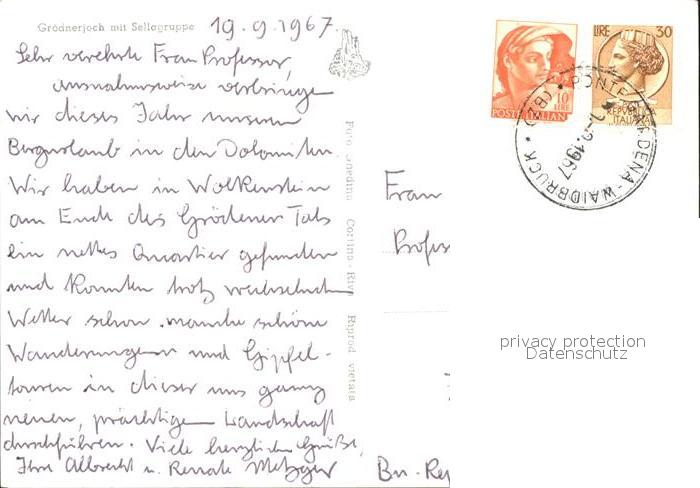 Grödnerjoch mit Sellagruppe
19.9.1967.
Sehr verehrte Frau Professor,
ausnahmsweise verbringen
wir dieses Jahr unseren
Bergurlaub in den Dolomiten.
Wir haben in Wolkenstein
am Ende des Grödener Tals
ein nettes Quartier gefunden
und konnten trotz wechselnden
Wetter schon manche schöne
Wanderungen und Gipfel-
touren in dieser uns ganz
neuen, prächtigen Landschaft
durchführen. Viele herzliche Grüße,
Ihre Albrecht u. Renate Metzger
Foto Ghedina Cortina Riproduz. vietata
10
LIRE
POSTE ITALIANE
LIRE 30
REPUBBLICA
ITALIANA
PONTE GARDENA - WAIDBRUCK (BZ)
9-1967
Frau
Profess
Bn-
privacy protection
Datenschutz